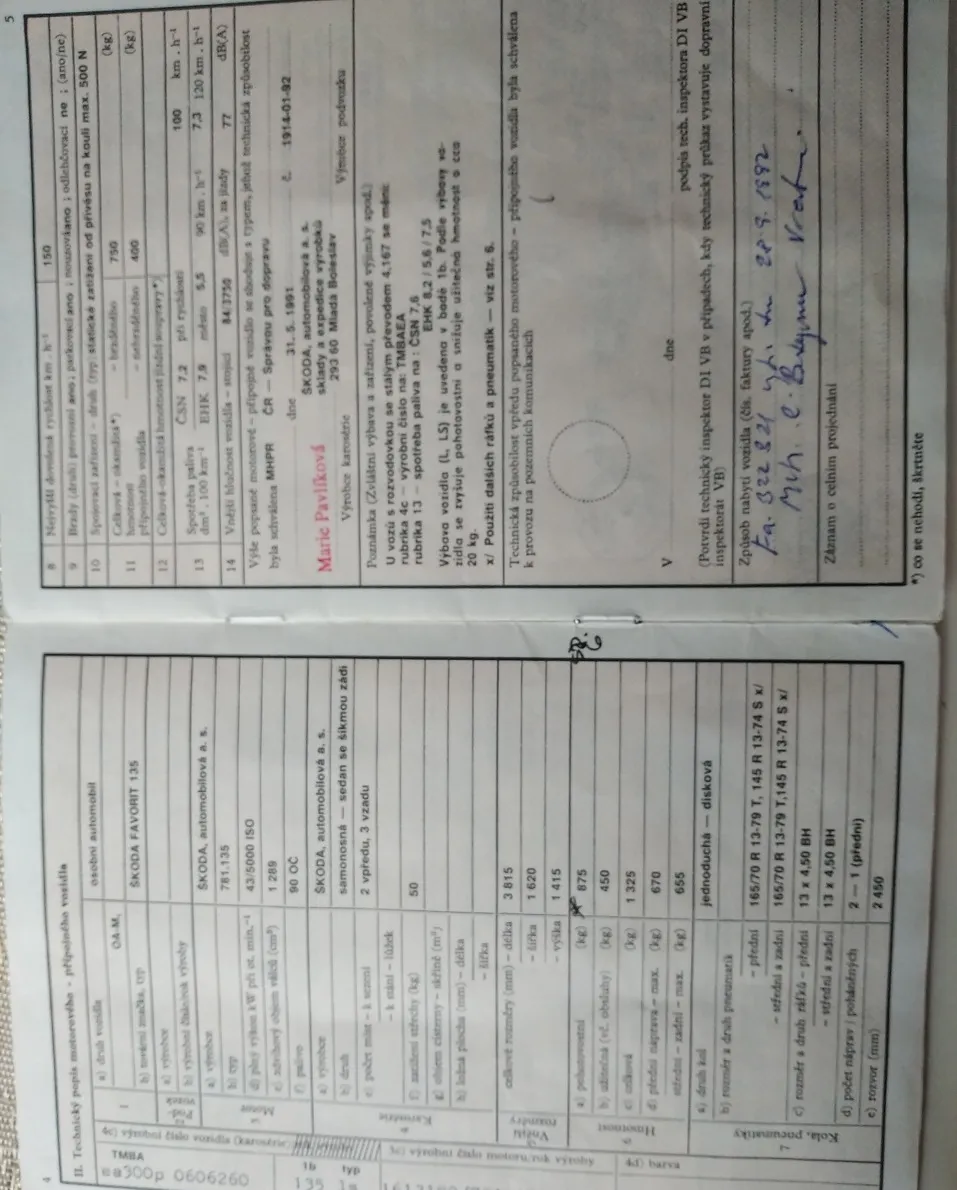 4
II. Technický popis motorového - přípojného vozidla
1
a) druh vozidla
OA-M1
osobní automobil
b) tovární značka, typ
ŠKODA FAVORIT 135
2
Pod-
vozek
a) výrobce
b) výrobní číslo/rok výroby
3
Motor
a) výrobce
ŠKODA, automobilová a. s.
b) typ
781.135
d) plný výkon kW při ot. min.⁻¹
43/5000 ISO
e) zdvihový objem válců (cm³)
1 289
f) palivo
90 OČ
4
Karosérie
a) výrobce
ŠKODA, automobilová a. s.
b) druh
samonosná — sedan se šikmou zádí
e) počet míst – k sezení
2 vpředu, 3 vzadu
– k stání – lůžek
f) zatížení střechy (kg)
50
g) objem cisterny – skříně (m³)
h) ložná plocha (mm) – délka
– šířka
5
Vnější
rozměry
celkové rozměry (mm) – délka
3 815
– šířka
1 620
– výška
1 415
6
Hmotnost
a) pohotovostní (kg)
875
b) užitečná (vč. obsluhy) (kg)
450
c) celková (kg)
1 325
d) přední náprava – max. (kg)
670
střední – zadní – max. (kg)
655
7
Kola, pneumatiky
a) druh kol
jednoduchá — disková
b) rozměr a druh pneumatik
– přední
165/70 R 13-79 T, 145 R 13-74 S x/
– střední a zadní
165/70 R 13-79 T, 145 R 13-74 S x/
c) rozměr a druh ráfků – přední
13 x 4,50 BH
– střední a zadní
13 x 4,50 BH
d) počet náprav / poháněných
2 — 1 (přední)
e) rozvor (mm)
2 450
4c) výrobní číslo vozidla (karosérie)
TMBA
ea300p 0606260
1b typ
135
3c) výrobní číslo motoru/rok výroby
4d) barva
5
8
Nejvyšší dovolená rychlost km . h⁻¹
150
9
Brzdy (druh): provozní ano ; parkovací ano ; nouzová ano ; odlehčovací ne ; (ano/ne)
10
Spojovací zařízení – druh (typ) statické zatížení od přívěsu na kouli max. 500 N
11
Celková – okamžitá*)
hmotnost
přípojného vozidla
– brzděného
750
(kg)
– nebrzděného
400
(kg)
12
Celková-okamžitá hmotnost jízdní soupravy*)
13
Spotřeba paliva
dm³ . 100 km⁻¹
ČSN 7,2 při rychlosti
100 km . h⁻¹
EHK 7,9 město 5,5 90 km . h⁻¹ 7,3 120 km . h⁻¹
14
Vnější hlučnost vozidla – stojící 84/3750 dB(A), za jízdy 77 dB(A)
Výše popsané motorové – přípojné vozidlo se shoduje s typem, jehož technická způsobilost
byla schválena MHPR ČR — Správou pro dopravu
dne 31. 5. 1991 č. 1914-01-92
ŠKODA, automobilová a. s.
sklady a expedice výrobků
293 60 Mladá Boleslav
Marie Pavlíková
Výrobce karosérie
Výrobce podvozku
Poznámka (Zvláštní výbava a zařízení, povolené výjimky apod.)
U vozů s rozvodovkou se stálým převodem 4,167 se mění:
rubrika 4c — výrobní číslo na: TMBAEA
rubrika 13 — spotřeba paliva na : ČSN 7,6
EHK 8,2 / 5,6 / 7,5
Výbava vozidla (L, LS) je uvedena v bodě 1b. Podle výbavy vo-
zidla se zvyšuje pohotovostní a snižuje užitečná hmotnost o cca
20 kg.
x/ Použití dalších ráfků a pneumatik — viz str. 6.
Technická způsobilost vpředu popsaného motorového – přípojného vozidla byla schválena
k provozu na pozemních komunikacích
V
dne
podpis tech. inspektora DI VB
(Potvrdí technický inspektor DI VB v případech, kdy technický průkaz vystavuje dopravní
inspektorát VB)
Způsob nabytí vozidla (čís. faktury apod.)
Fa. 322 821 28. 9. 1992
Záznam o celním projednání
*) co se nehodí, škrtněte